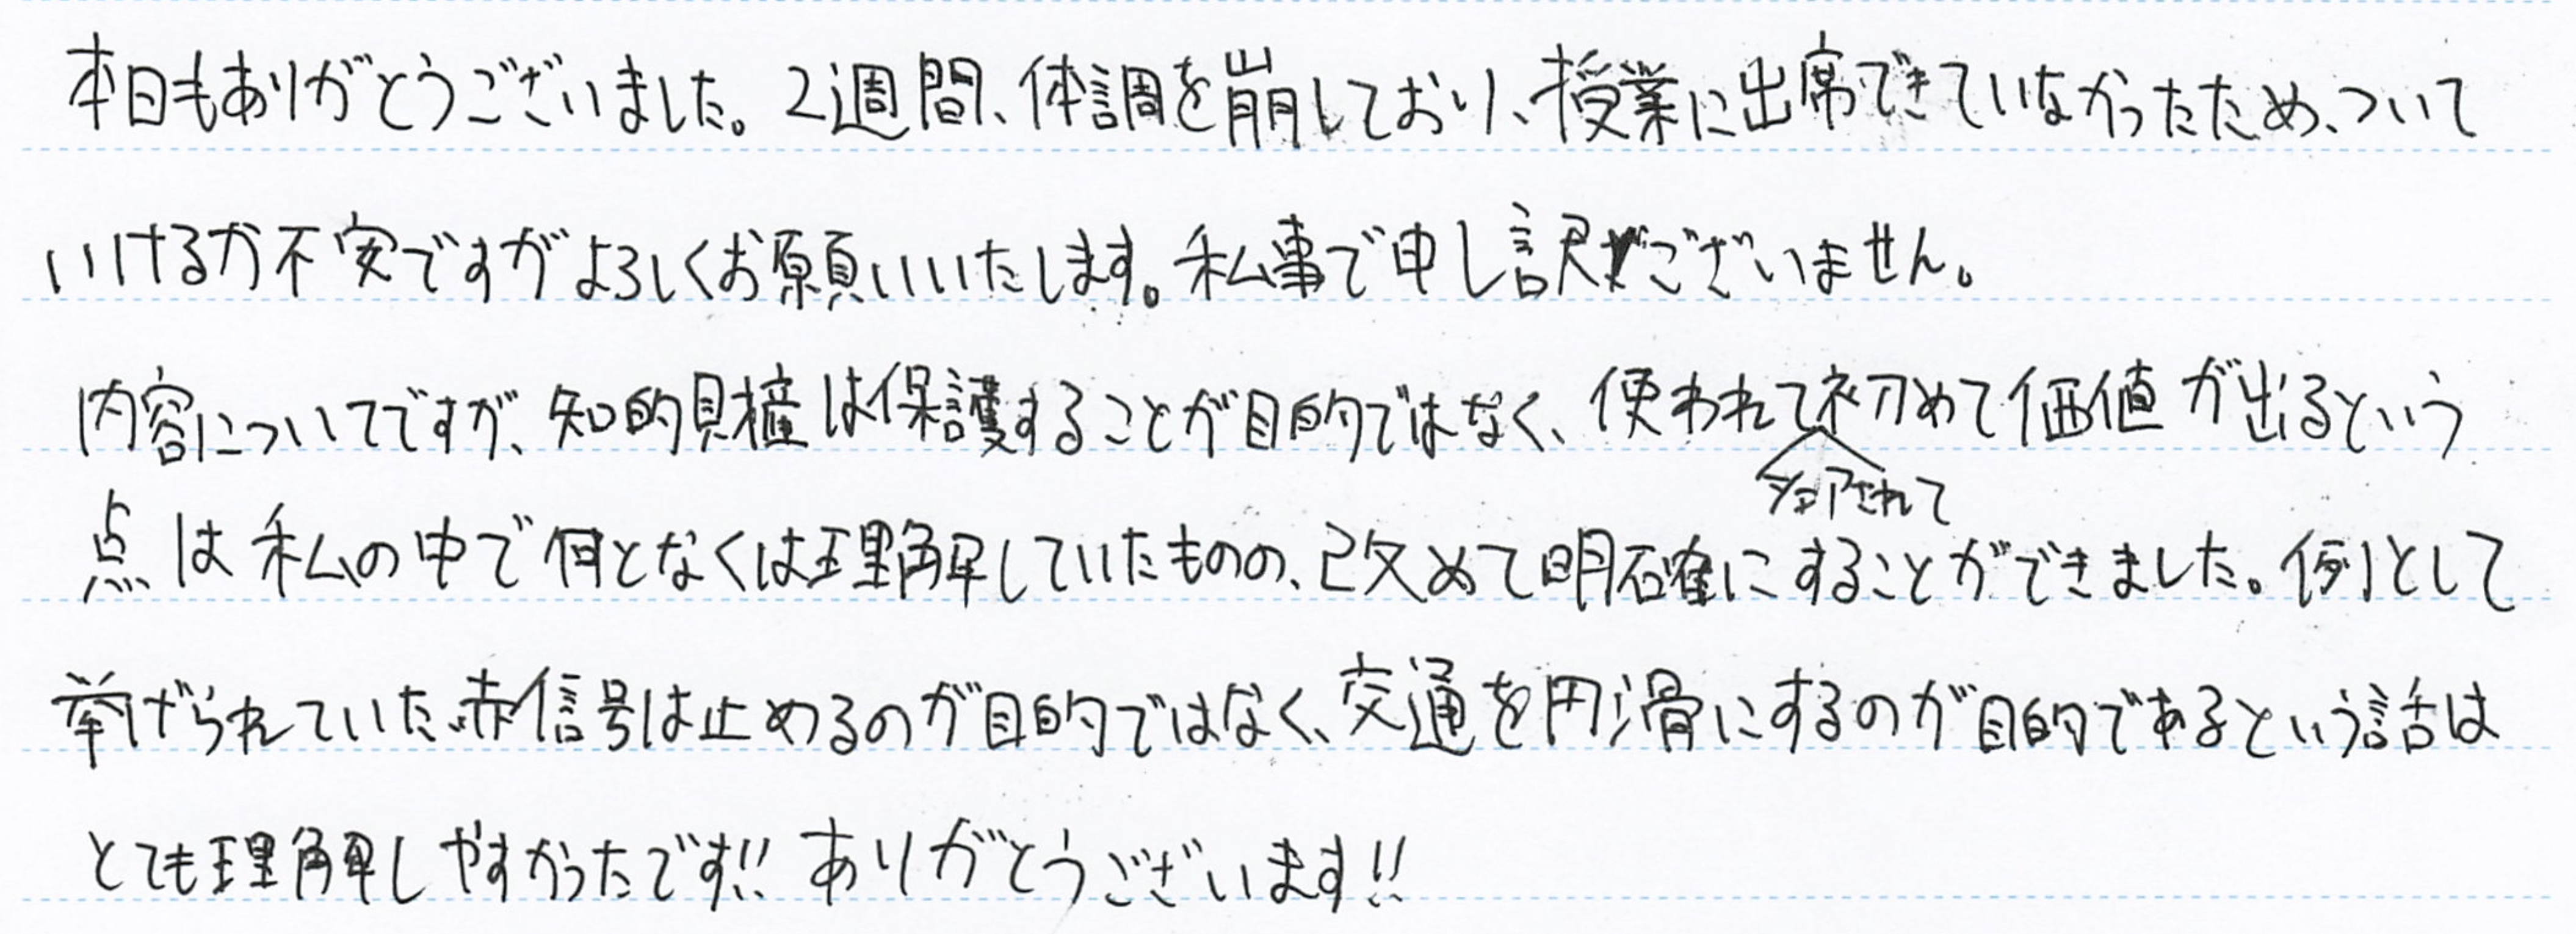 本日もありがとうございました。2週間、体調を崩しており、授業に出席できていなかったため、ついて
いけるか不安ですがよろしくお願いいたします。私事で申し訳ございません。
内容についてですが、知的財産は保護することが目的ではなく、使われて初めて価値が出るという
点は私の中で何となくは理解していたものの、改めて明確にすることができました。例として
挙げられていた赤信号は止めるのが目的ではなく、交通を円滑にするのが目的であるという話は
とても理解しやすかったです!! ありがとうございます!!